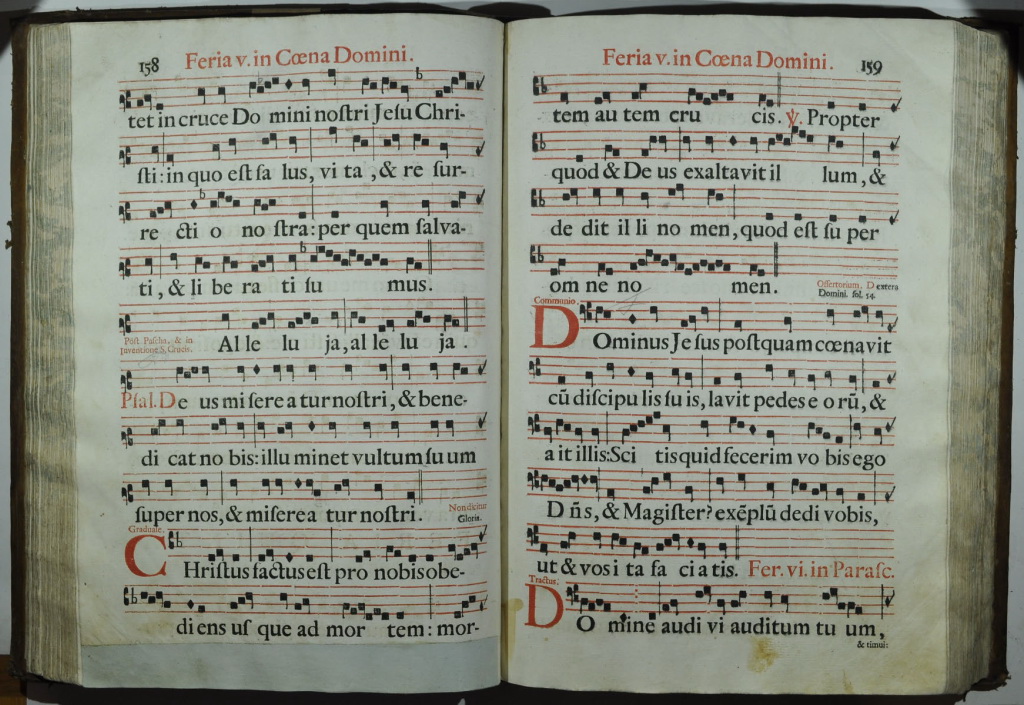 158 Feria v. in Cœna Domini.
tet in cruce Do mini noſtri Jeſu Chri-
ſti: in quo eſt ſa lus, vi ta, & re ſur-
re cti o no ſtra: per quem ſalva-
ti, & li be ra ti ſu mus.
Poſt Paſcha, & in
Inventione S. Crucis.
Al le lu ja, al le lu ja.
Pſal. De us mi ſere a tur noſtri, & bene-
di cat no bis: illu minet vultum ſu um
super nos, & miſerea tur noſtri.
Non dicitur
Gloria.
Graduale.
CHriſtus factus eſt pro nobis obe-
di ens uſ que ad mor tem: mor-
Feria v. in Cœna Domini. 159
tem au tem cru cis. ℣. Propter
quod & De us exaltavit il lum, &
de dit il li no men, quod eſt ſu per
om ne no men.
Offertorium. Dextera
Domini. fol. 54.
Communio.
DOminus Je ſus poſtquam cœnavit
cū diſcipu lis ſu is, lavit pedes e orū, &
a it illis: Sci tis quid fecerim vo bis ego
Dñs, & Magiſter? exēplū dedi vobis,
ut & vos i ta fa ci a tis. Fer. vi. in Paraſc.
Tractus.
DO mine audi vi auditum tu um,
& timui: